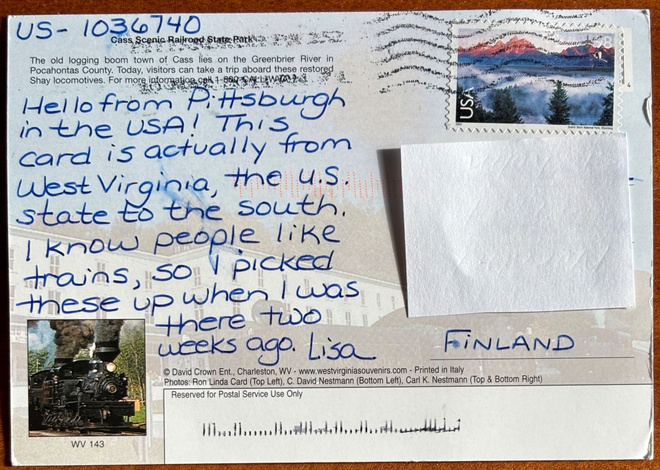 US-1036740
Cass Scenic Railroad State Park
The old logging boom town of Cass lies on the Greenbrier River in
Pocahontas County. Today, visitors can take a trip aboard these restored
Shay locomotives. For more information call 1-800-CALL-WVA.
Hello from Pittsburgh
in the USA! This
card is actually from
West Virginia, the U.S.
state to the south.
I know people like
trains, so I picked
these up when I was
there two
weeks ago. Lisa
USA
FINLAND
© David Crown Ent., Charleston, WV - www.westvirginiasouvenirs.com - Printed in Italy
Photos: Ron Linda Card (Top Left), C. David Nestmann (Bottom Left), Carl K. Nestmann (Top & Bottom Right)
Reserved for Postal Service Use Only
WV 143